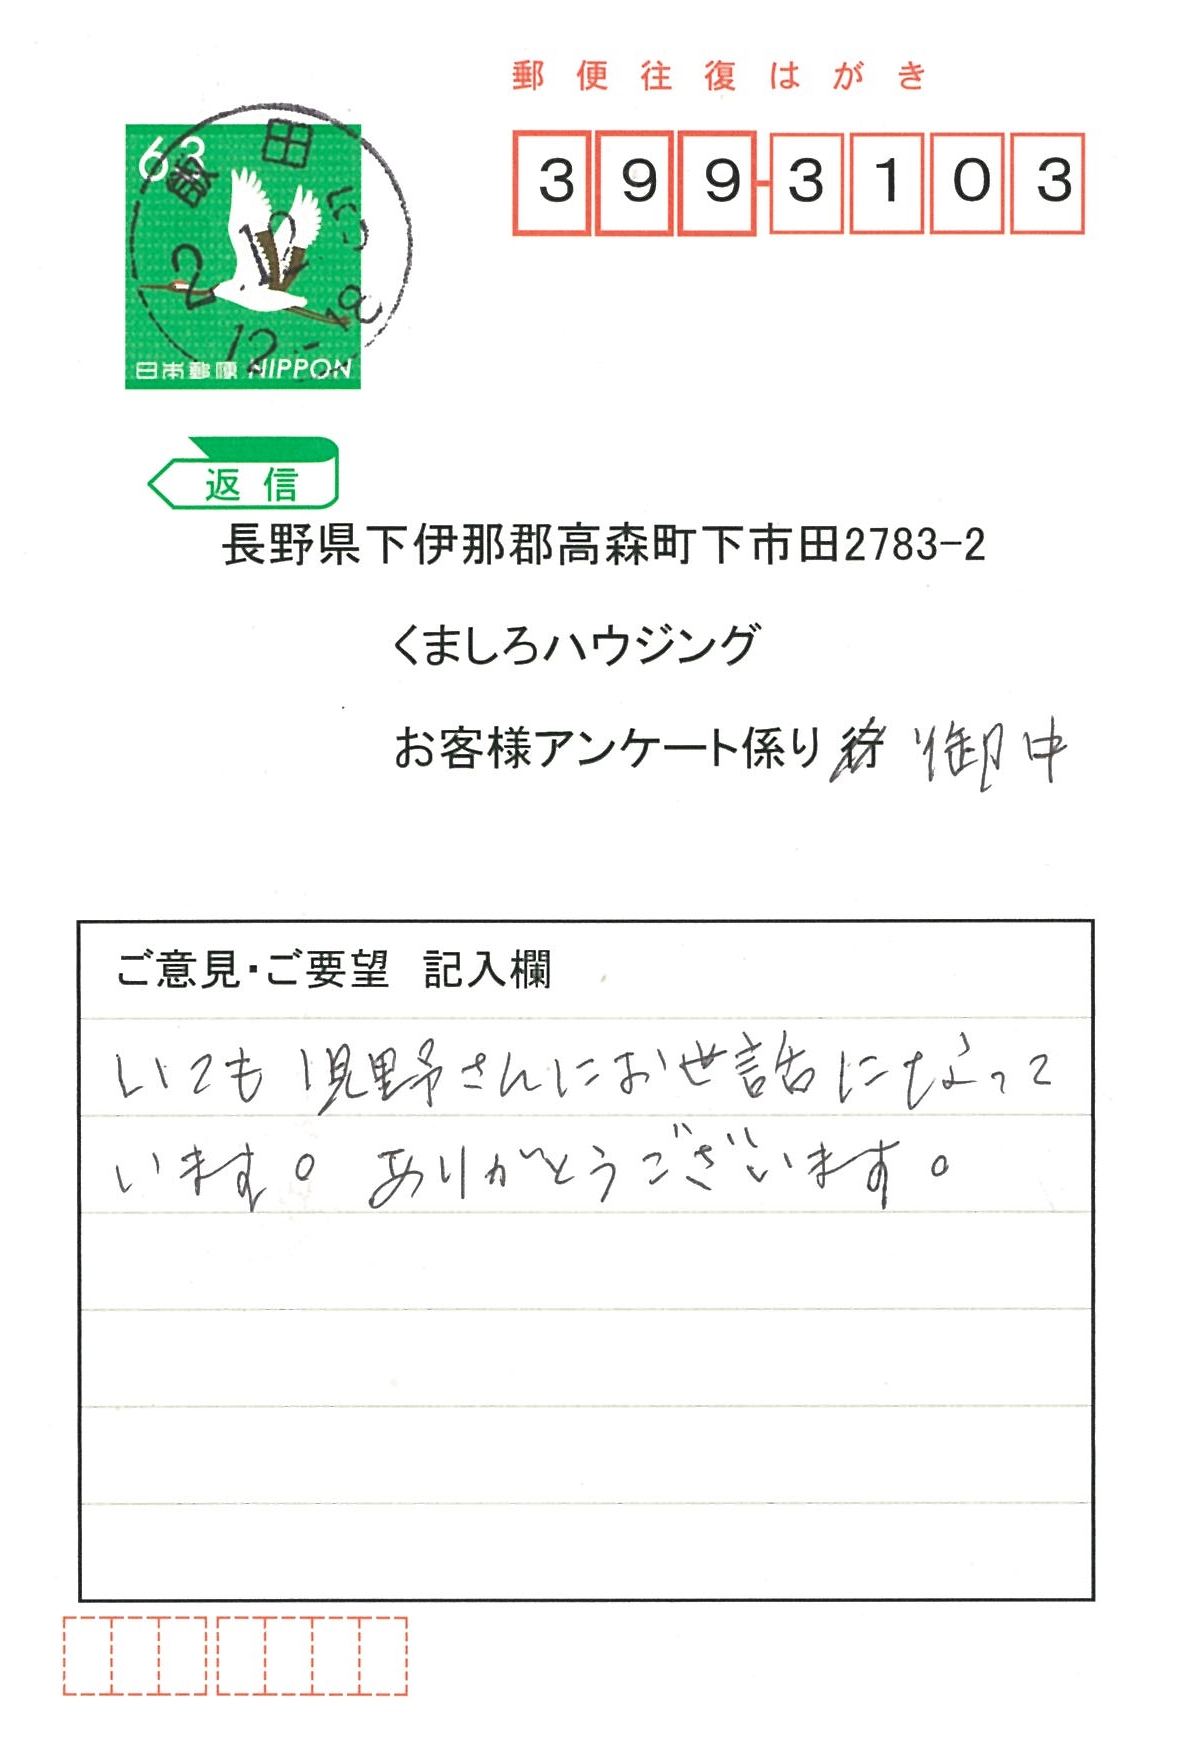 郵便往復はがき
399-3103
63
飯田
2.12.
12-18
日本郵便 NIPPON
返信
長野県下伊那郡高森町下市田2783-2
くましろハウジング
お客様アンケート係り 行 御中
ご意見・ご要望 記入欄
いつも 野さんにお世話になって
います。ありがとうございます。